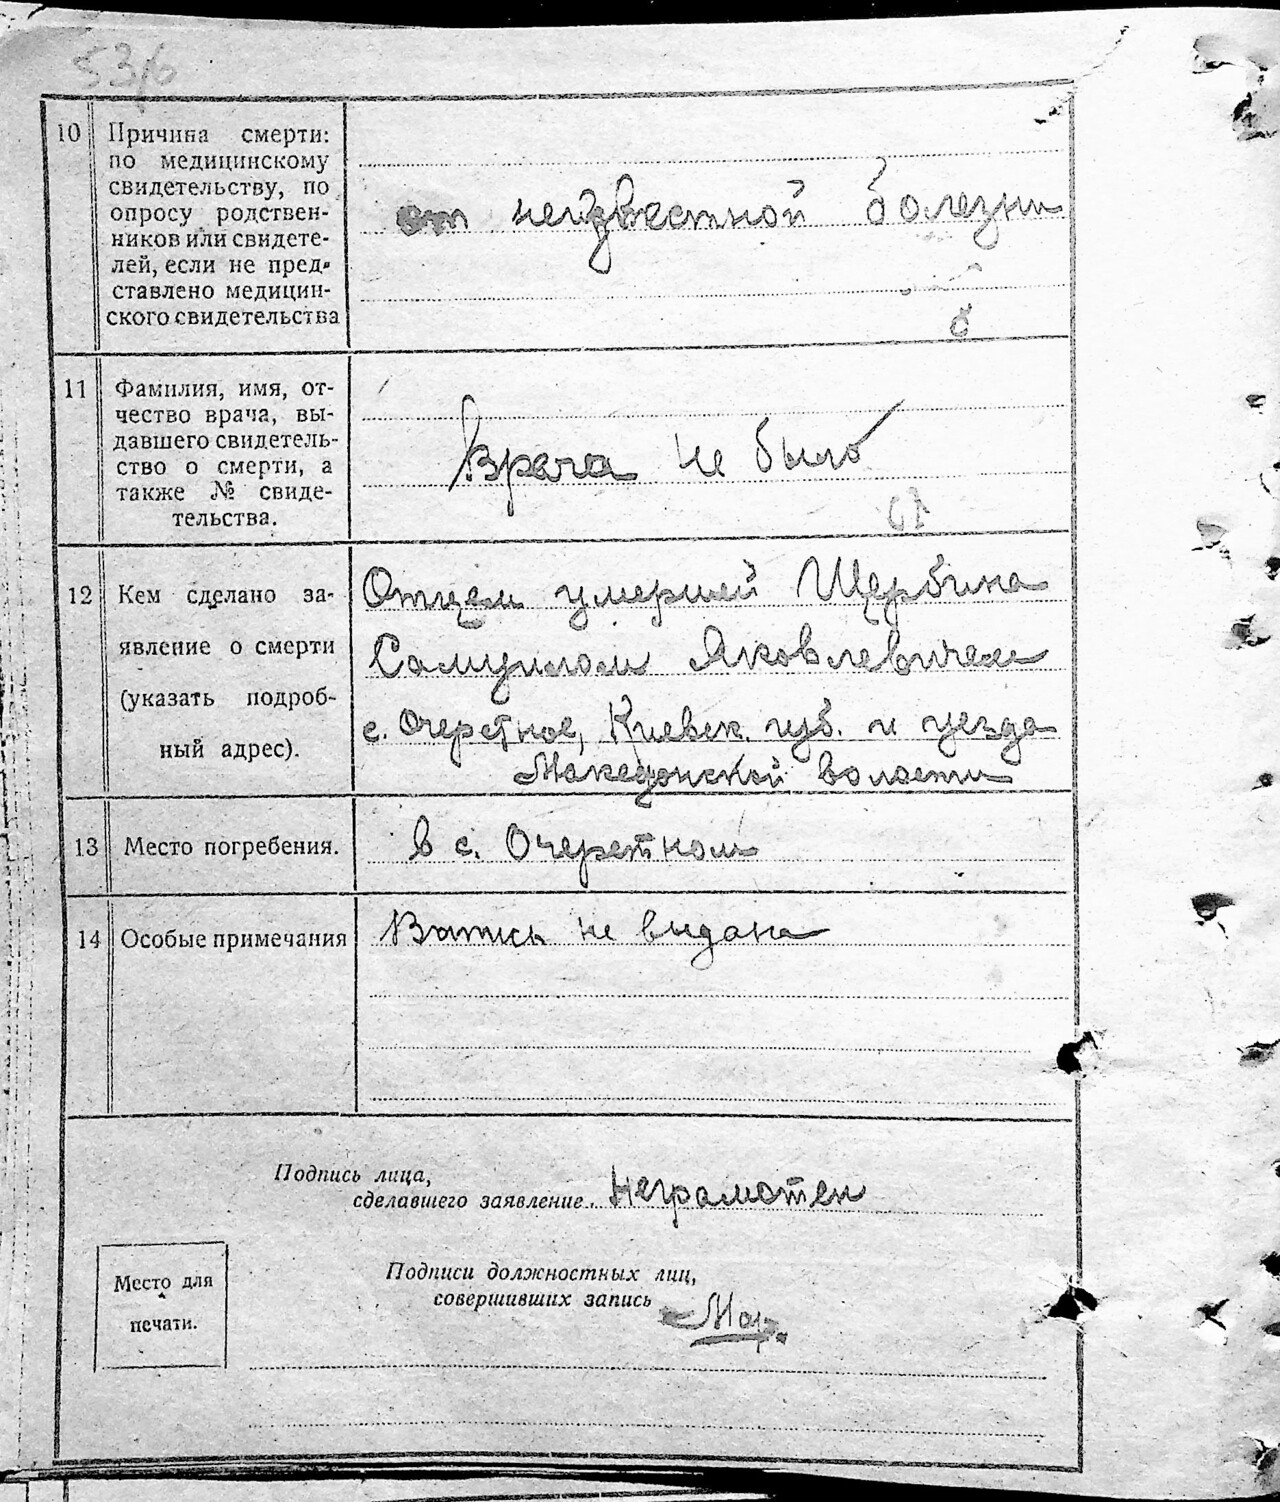 53/б
10 Причина смерти:
по медицинскому
свидетельству, по
опросу родствен-
ников или свидете-
лей, если не пред-
ставлено медицин-
ского свидетельства
от неизвестной болезни
11 Фамилия, имя, от-
чество врача, вы-
давшего свидетель-
ство о смерти, а
также № свиде-
тельства.
Врача не было
12 Кем сделано за-
явление о смерти
(указать подроб-
ный адрес).
Отцем умершей Щербина
Самуилом Яковлевичем
с. Очеретное, Киевск. губ. и уезда
Македонской волости
13 Место погребения.
в с. Очеретном
14 Особые примечания
не выдана
Подпись лица,
сделавшего заявление Неграмотен
Подписи должностных лиц,
совершивших запись
Место для
печати.